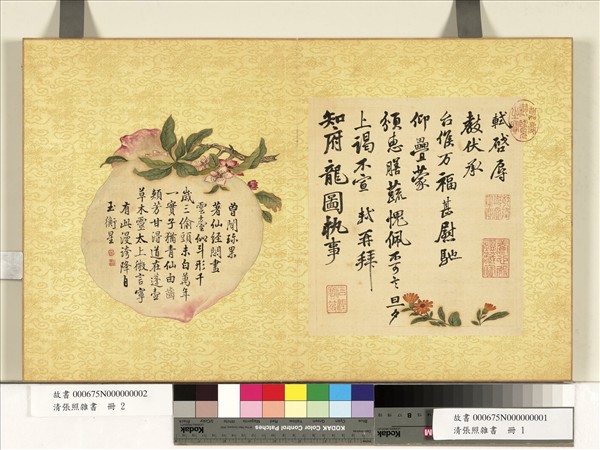 軾啓辱
教伏承
台候万福甚慰馳
仰疊蒙
頒惠膳蔬愧佩不可言旦夕
上謁不宣 軾再拜
知府龍圖執事
曾聞珎果
著仙經畫
雲臺似斗形千
歲三偷頭未白萬年
一實子猶青仙由齒
頰芳甘得道在蓬壺
草木靈太上微言寧
有此漫誇降日
玉衡星
故書 000675N000000002
清張照雜書 冊 2
Kodak Color Control Patches
Kodak
故書 000675N000000001
清張照雜書 冊 1